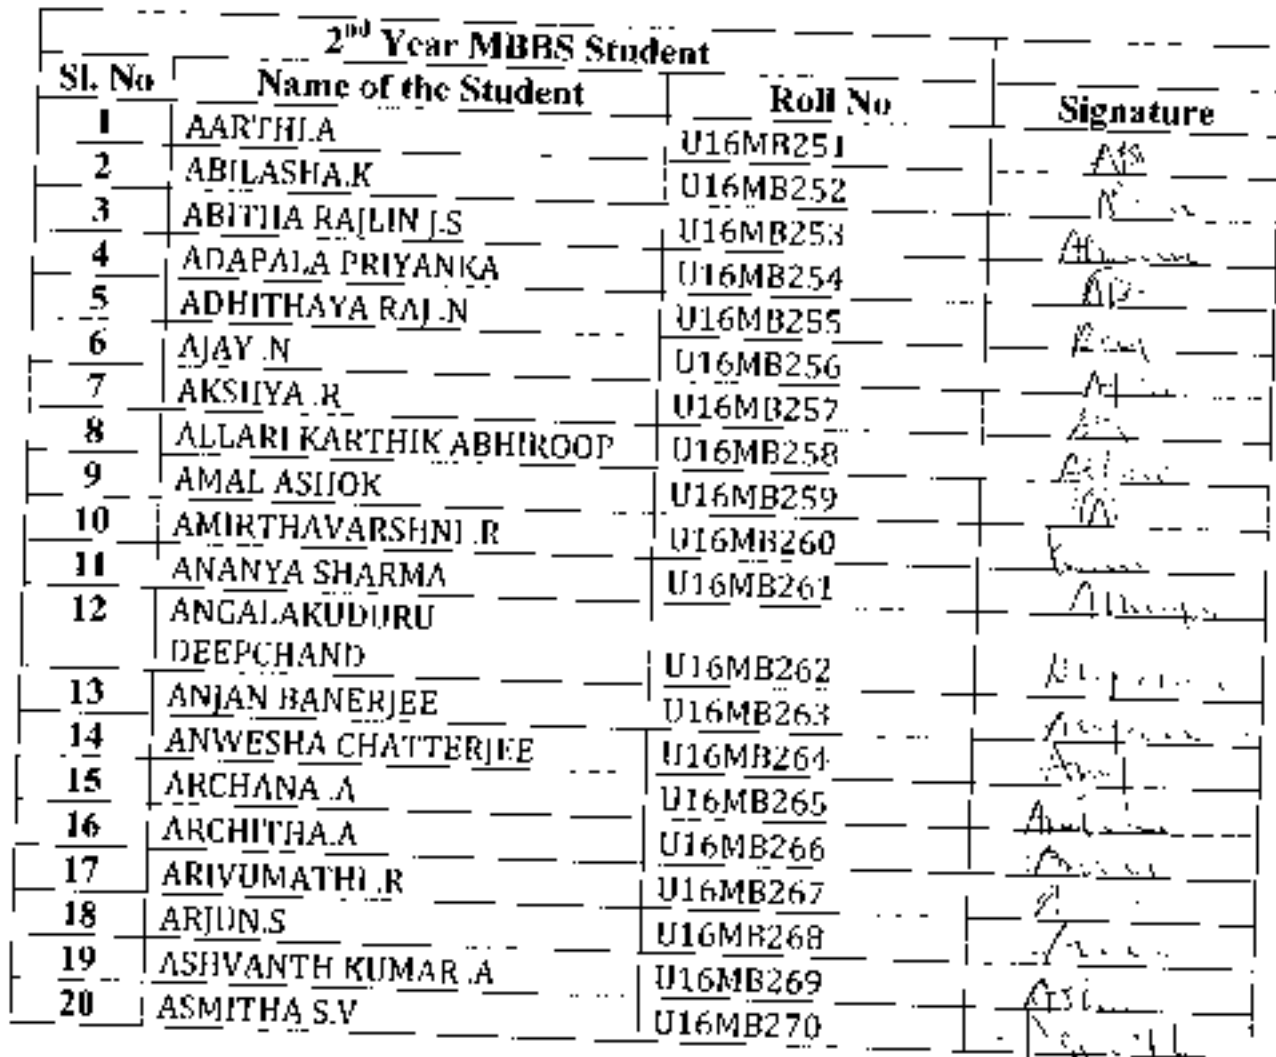 2nd Year MBBS Student
Sl. No Name of the Student Roll No Signature
1 AARTHI.A U16MB251
2 ABILASHA.K U16MB252
3 ABITHA RAJLIN J.S U16MB253
4 ADAPALA PRIYANKA U16MB254
5 ADHITHAYA RAJ .N U16MB255
6 AJAY .N U16MB256
7 AKSHYA .R U16MB257
8 ALLARI KARTHIK ABHIROOP U16MB258
9 AMAL ASHOK U16MB259
10 AMIRTHAVARSHNI .R U16MB260
11 ANANYA SHARMA U16MB261
12 ANGALAKUDURU
DEEPCHAND U16MB262
13 ANJAN BANERJEE U16MB263
14 ANWESHA CHATTERJEE U16MB264
15 ARCHANA .A U16MB265
16 ARCHITHA.A U16MB266
17 ARIVUMATHI .R U16MB267
18 ARJUN.S U16MB268
19 ASHVANTH KUMAR .A U16MB269
20 ASMITHA S.V U16MB270